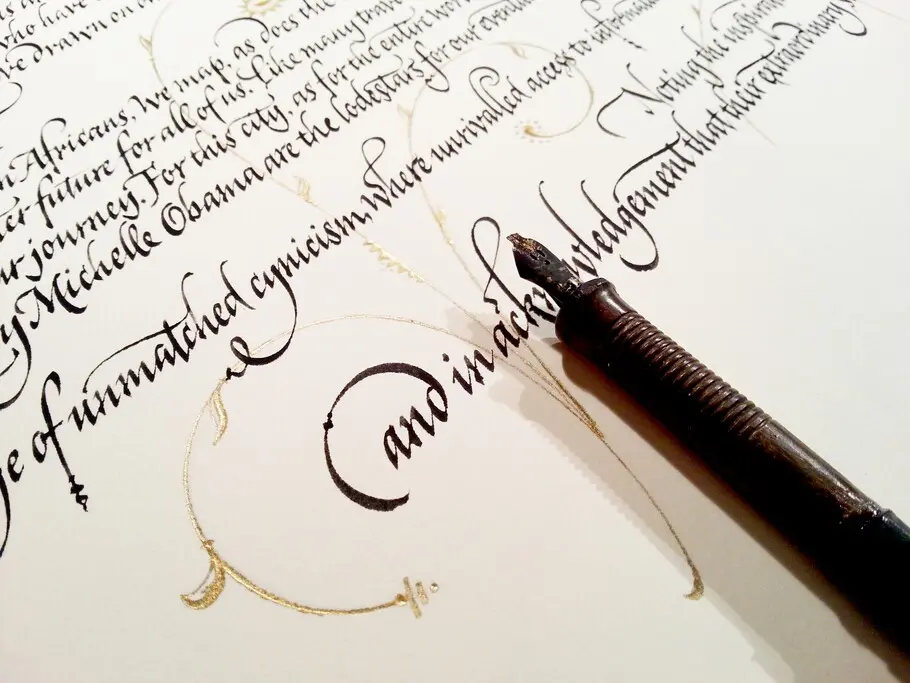 who have
drawn on
Africans. We map, as does the
future for all of us. Like many
journey. For this city, as for the entire
Michelle Obama are the lodestars for our
of unmatched cynicism, where unrivalled access to
Noting the
and in acknowledgement that their extraordinary